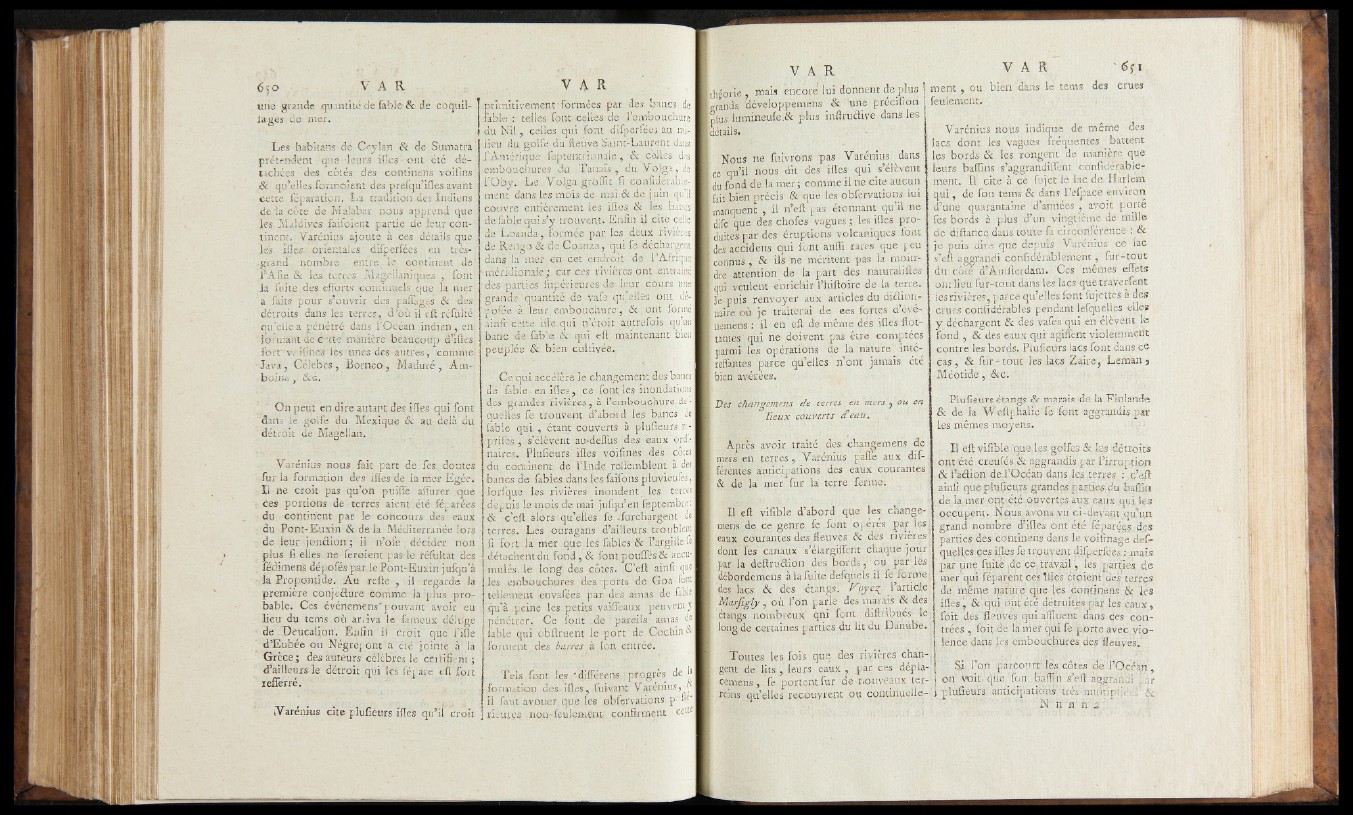 650 V A R
une grande quantité de sable & de coquil-
lages de mer.
Les habitans de Ceylan & de Sumatra
prétendent que leurs isles ont été dé-
tachées des côtés des continens voisins
& qu'elles formoient des presqu'isles avant
cette séparation. La tradition des Indiens
de la côte de Malabar nous apprend que
les Maldives faisoient partie de leur con-
tinent. Varénius ajoute à ces détails que
les isles orientales dispersées en très-
grand nombre entre le continent de
l'Asie & les terres Magellaniques, sont
la suite des efforts continuels que la mer
a faits pour s'ouvrir des passages & des
détroits dans les terres, d'où il est résulté
qu'elle a pénétré dans l'Océan indien, en
formant de cette manière beaucoup d'isles
fort voisines les unes des autres, comme
Java, Célebes, Borneo, Maduré, Am-
boine, &c.
On peut en dire autant des isles qui sont
dans le golfe du Mexique & au delà du
détroit de Magellan.
Varénius nous fait part de ses doutes
sur la formation des isles de la mer Egée.
Il ne croit pas qu'on puisse assurer que
ces portions de terres aient été séparées
du continent par le concours des eaux
du Pont-Euxin & de la Méditerranée lors
de leur jonction; il n'ose décider non
plus si elles ne seroient pas le résultat des
sédimens déposés par le Pont-Euxin jusqu'à
la Propontide. Au reste, il regarde la
première conjecture comme la plus pro-
bable. Ces événemens pouvant avoir eu
lieu du tems où arriva le fameux déluge
de Deucalion. Enfin il croit que l'isle
d'Eubée ou Négrep ont a été jointe à la
Grèce; des auteurs célèbres le certifient;
d'ailleurs le détroit qui les sépare est fort
resserré.
Varénius cite plusieurs isles qu'il croit
V A R
primitivement formées par des bancs de
sable : telles sont celles de l'embouchure
du Nil, celles qui sont dispersées au mi-
lieu du golfe du fleuve Saint-Laurent dans
l'Amérique septentrionale, & celles des
embouchures du Tanais, du Volga, de
l'Oby. Le Volga grossit si considérable-
ment dans les mois de mai & de juin qu'il
couvre entièrement les isles & les bancs
de sable qui s'y trouvent. Enfin il cite celle
de Loanda, formée par les deux rivières
de Rengo & de Coanza, qui se déchargent
dans la mer en cet endroit de l'Afrique
méridionale; car ces rivières ont entraîné
des parties supérieures de leur cours une
grande quantité de vase qu'elles ont dé-
posée à leur embouchure, & ont formé
ainsi cette isle qui n'étoit autrefois qu'un
banc de sable & qui est maintenant bien
peuplée & bien cultivée.
Ce qui accélère le changement des bancs
de sable en isles, ce sont les inondations
des grandes rivières, à l'embouchure des-
quelles se trouvent d'abord les bancs de
sable qui, étant couverts à plusieurs re-
prises, s'élèvent au-dessus des eaux ordi-
naires. Plusieurs isles voisines des côtes
du continent de l'Inde ressemblent à des
bancs de sables dans les saisons pluvieuses,
lorsque les rivières inondent les terres
depuis le mois de mai jusqu'en septembre;
& c'est alors qu'elles se surchargent de
terres. Les ouragans d'ailleurs troublent
si fort la mer que les sables & l'argille se
détachent du fond, & sont poussés & accu-
mulés le long des côtes. C'est ainsi que
les embouchures des ports de Goa sont
tellement envasées par des amas de sable
qu'à peine les petits vaisseaux peuvent y
pénétrer. Ce sont de pareils amas de
sable qui obstruent le port de Cochin &
forment des barres à son entrée.
Tels sont les différens progrès de la
formation des isles, suivant Varénius, &
il faut avouer que les observations
rieures non-seulement confirment cette
V A R
théorie, mais encore lui donnent de plus
grands développemens & une précision
plus lumineuse & plus instructive dans les
détails.
Nous ne suivrons pas Varénius dans
ce qu'il nous dit des isles qui s'élèvent
du fond de la mer; comme il ne cite aucun
fait bien précis & que les observations lui
manquent, il n'est pas étonnant qu'il ne
dise que des choses vagues; les isles pro-
duites par des éruptions volcaniques sont
des accidens qui sont aussi rares que peu
connus, & ils ne méritent pas la moin-
dre attention de la part des naturalistes
qui veulent enrichir l'histoire de la terre.
Je puis renvoyer aux articles du diction-
naire où je traiterai de ces sortes d'évé-
nemens : il en est de même des isles flot-
tantes qui ne doivent pas être comptées
parmi les opérations de la nature inté-
ressantes parce qu'elles n'ont jamais été
bien avérées.
Des changemens de terres en mers, ou en
lieux couverts d'eau.
Après avoir traité des changemens de
mers en terres, Varénius passe aux dif-
férentes anticipations des eaux courantes
& de la mer sur la terre ferme.
Il est visible d'abord que les change-
mens de ce genre se sont opérés par les
eaux courantes des fleuves & des rivières
dont les canaux s'élargissent chaque jour
par la destruction des bords, ou par les
débordemens à la suite desquels il se forme
des lacs & des étangs. Voyez l'article
Marsigly, où l'on parle des marais & des
étangs nombreux qui sont distribués le
long de certaines parties du lit du Danube.
Toutes les fois que des rivières chan-
gent de lits, leurs eaux, par ces dépla-
cemens, se portent sur de nouveaux ter-
reins qu'elles recouvrent ou continuelle-
V A R 651
ment, ou bien dans le tems des crues
seulement.
Varénius nous indique de même des
lacs dont les vagues fréquentes battent
les bords & les rongent de manière que
leurs bassins s'aggrandissent considérable-
ment. Il cite à ce sujet le lac de Harlem
qui, de son tems & dans l'espace environ
d'une quarantaine d'années, avoit porté
ses bords à plus d'un vingtième de mille
de distance dans toute sa circonférence : &
je puis dire que depuis Varénius ce lac
s'est aggrandi considérablement, sur-tout
du côté d'Amsterdam. Ces mêmes effets
ont lieu sur-tout dans les lacs que traversent
les rivières, parce qu'elles sont sujettes à des
crues considérables pendant lesquelles elles
y déchargent & des vases qui en élèvent le
fond, & des eaux qui agissent violemment
contre les bords. Plusieurs lacs sont dans ce
cas, & sur-tout les lacs Zaire, Leman,
Méotide, &c.
Plusieurs étangs & marais de la Finlande
& de la Westphalie se sont aggrandis par
les mêmes moyens.
Il est visible que les golfes & les détroits
ont été creusés & aggrandis par l'irruption
& l'action de l'Océan dans les terres : c'est
ainsi que plusieurs grandes parties du bassin
de la mer ont été ouvertes aux eaux qui les
occupent. Nous avons vu ci-devant qu'un
grand nombre d'isles ont été séparées des
parties des continens dans le voisinage des-
quelles ces isles se trouvent dispersées : mais
par une suite de ce travail, les parties de
mer qui séparent ces isles étoient des terres
de même nature que les continens & les
isles, & qui ont été détruites par les eaux,
soit des fleuves qui affluent dans ces con-
trées, soit de la mer qui se porte avec vio-
lence dans les embouchures des fleuves.
Si l'on parcourt les côtes de l'Océan,
on voit que son bassin s'est aggrandi par
plusieurs anticipations très-multipliées &
N n n n 2